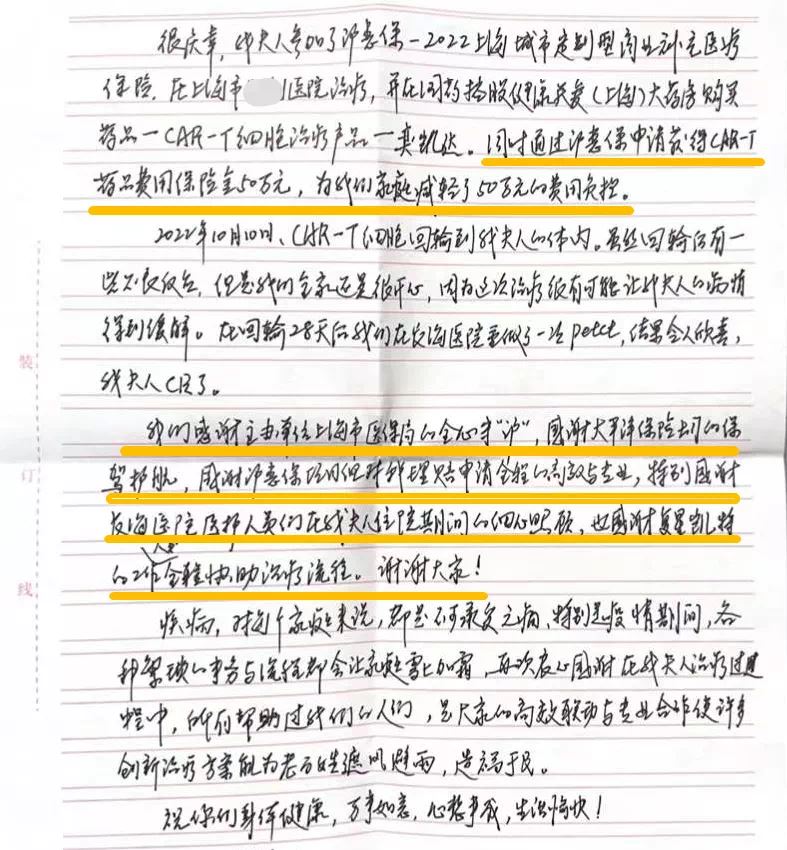 很庆幸，我夫人参加了沪惠保－2022上海城市定制型商业补充医疗
保险，在上海市 医院治疗，并在国药控股健康关爱（上海）大药房购买
药品－CAR-T细胞治疗产品－奕凯达。同时通过沪惠保申请获得CAR-T
药品费用保险金50万元，为我们家庭减轻了50万元的费用负担。
2022年10月10日、CAR-T细胞回输到我夫人的体内。虽然回输后有一
些不良反应，但是我们全家还是很开心，因为这次治疗很有可能让我夫人的病情
得到缓解。在回输28天后我们在 医院里做了一次petct，结果令人欣喜，
我夫人CR了。
我们感谢主办单位上海市医保局的全心守“沪”，感谢太平洋保险公司的保
驾护航，感谢沪惠保 对我理赔申请全程的高效与专业，特别感谢
医院医护人员们在我夫人住院期间的细心照顾，也感谢复星凯特
的工作人员全程协助治疗流程。谢谢大家！
疾病，对每个家庭来说，都是不可承受之痛、特别是疫情期间，各
种繁琐的事务与流程都会让家庭雪上加霜，再次衷心感谢在我夫人治疗过
程中，所有帮助过我们的人们，是大家的高效联动与专业合作使许多
创新治疗方案能为老百姓遮风避雨，造福于民。
祝你们身体健康，万事如意，心想事成，生活愉快！
装
订
线